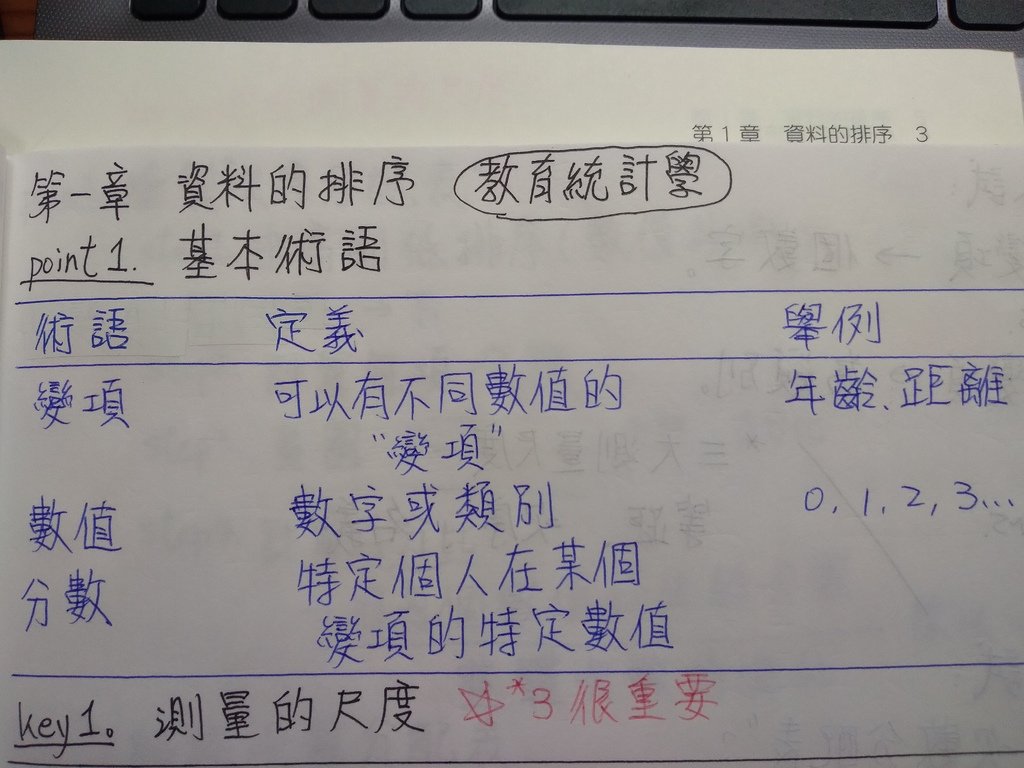 第1章 資料的排序 3
第一章 資料的排序 教育統計學
point 1. 基本術語
術語 定義 舉例
變項 可以有不同數值的 年齡、距離
"變項"
數值 數字或類別 0, 1, 2, 3...
分數 特定個人在某個
變項的特定數值
key 1。 測量的尺度 ☆*3 很重要